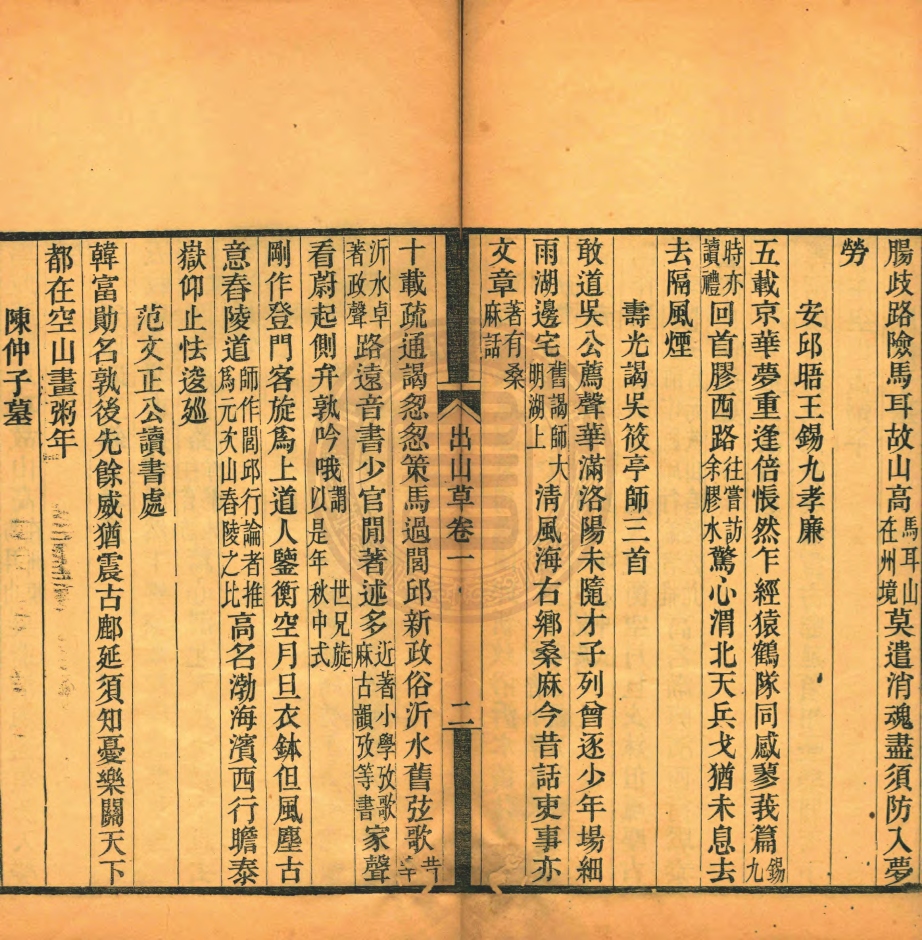 腸歧路險馬耳故山高馬耳山在州境莫遣消魂盡須防入夢
勞
安邱晤王錫九孝廉
五載京華夢重逢倍悵然乍經猿鶴隊同感蓼莪篇錫九
時亦讀禮回首膠西路往嘗訪余膠水驚心渭北天兵戈猶未息去
去隔風煙
壽光謁吳筱亭師三首
敢道吳公薦聲華滿洛陽未隨才子列曾逐少年場細
雨湖邊宅舊謁師大明湖上淸風海右鄉桑麻今昔話吏事亦
文章著有桑麻話
出山草卷一
二
十載疏通謁怱怱策馬過閭邱新政俗沂水舊弦歌
沂水卓著政聲路遠音書少官閒著述多近著小學攷歌麻古韻攷等書家聲
看蔚起側弁敦吟哦謂世兄旋以是年秋中式
剛作登門客旋爲上道人鑒衡空月旦衣鉢但風塵古
意舂陵道師作閭邱行論者推爲元次山舂陵之比高名渤海濱西行瞻泰
嶽仰止怯逡巡
范文正公讀書處
韓富勛名孰後先餘威猶震古鄜延須知憂樂關天下
都在空山畫粥年
陳仲子墓